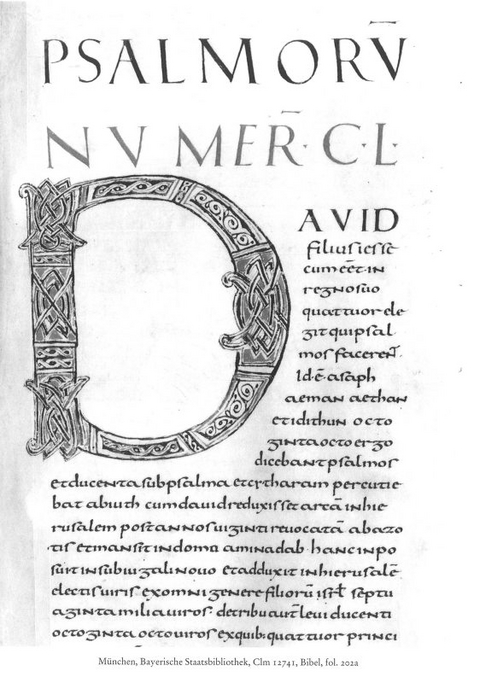 PSALMORV̄
NVMER̄·C·L·
DAVID
filius iesse
cum eēt in
regno suo
quattuor ele
git qui psal
mos facerent̄
Id·ē· asaph
aeman aethan
et idithun octo
ginta octo ergo
dicebant psalmos
et ducenta subpsalma et cytharam percutie
bat abiuth cum dauid reduxisset arcā in hie
rusalem post annos uiginti reuocatā abazo
tis et mansit in domu aminadab· hanc inpo
suit in subiugali nouo et adduxit in hierusalē
electis uiris ex omni genere filiorū isr̄l septu
aginta milia uiros· de tribu aut̄ leui ducenti
octoginta octo uiros ex quib; quattuor princi
München, Bayerische Staatsbibliothek, Clm 12741, Bibel, fol. 202a